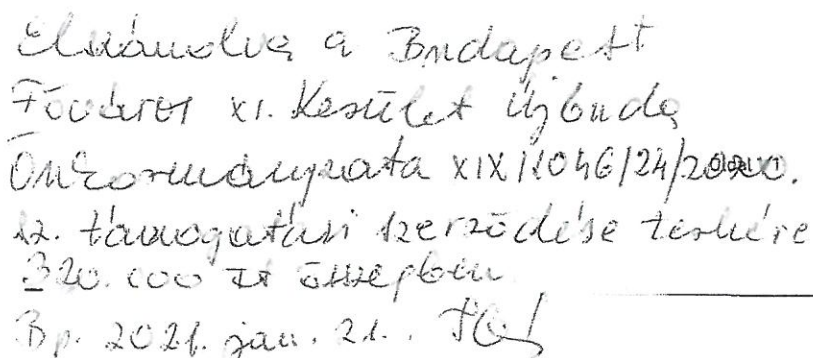 Elszámolva a Budapest
Főváros XI. Kerület Újbuda
Önkormányzata XIX/1046/24/2020.
sz. támogatási szerződése terhére
320.000 Ft összegben
Bp. 2021. jan. 21.